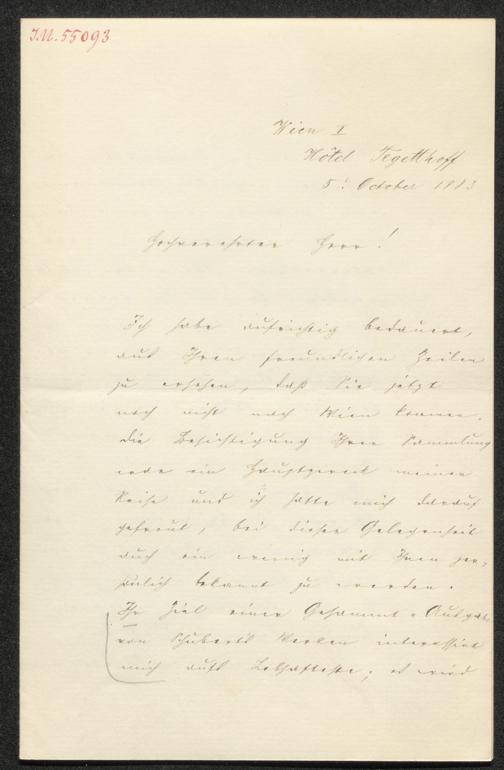 I.N. 55093
Wien I
Hôtel Tegetthoff
5t October 1883
Hochverehrter Herr!
Ich habe aufrichtig bedauert,
aus Ihren freundlichen Zeilen
zu ersehen, daß Sie jetzt
noch nicht nach Wien kommen.
Die Besichtigung Ihrer Sammlung
war ein Hauptzweck meiner
Reise und ich hatte mich darauf
gefreut, bei dieser Gelegenheit
auch ein wenig mit Ihnen per-
sönlich bekannt zu werden.
Ihr Ziel einer Gesammt-Ausgabe
von Schuberts Werken interessirt
mich aufs Lebhafteste; es wird